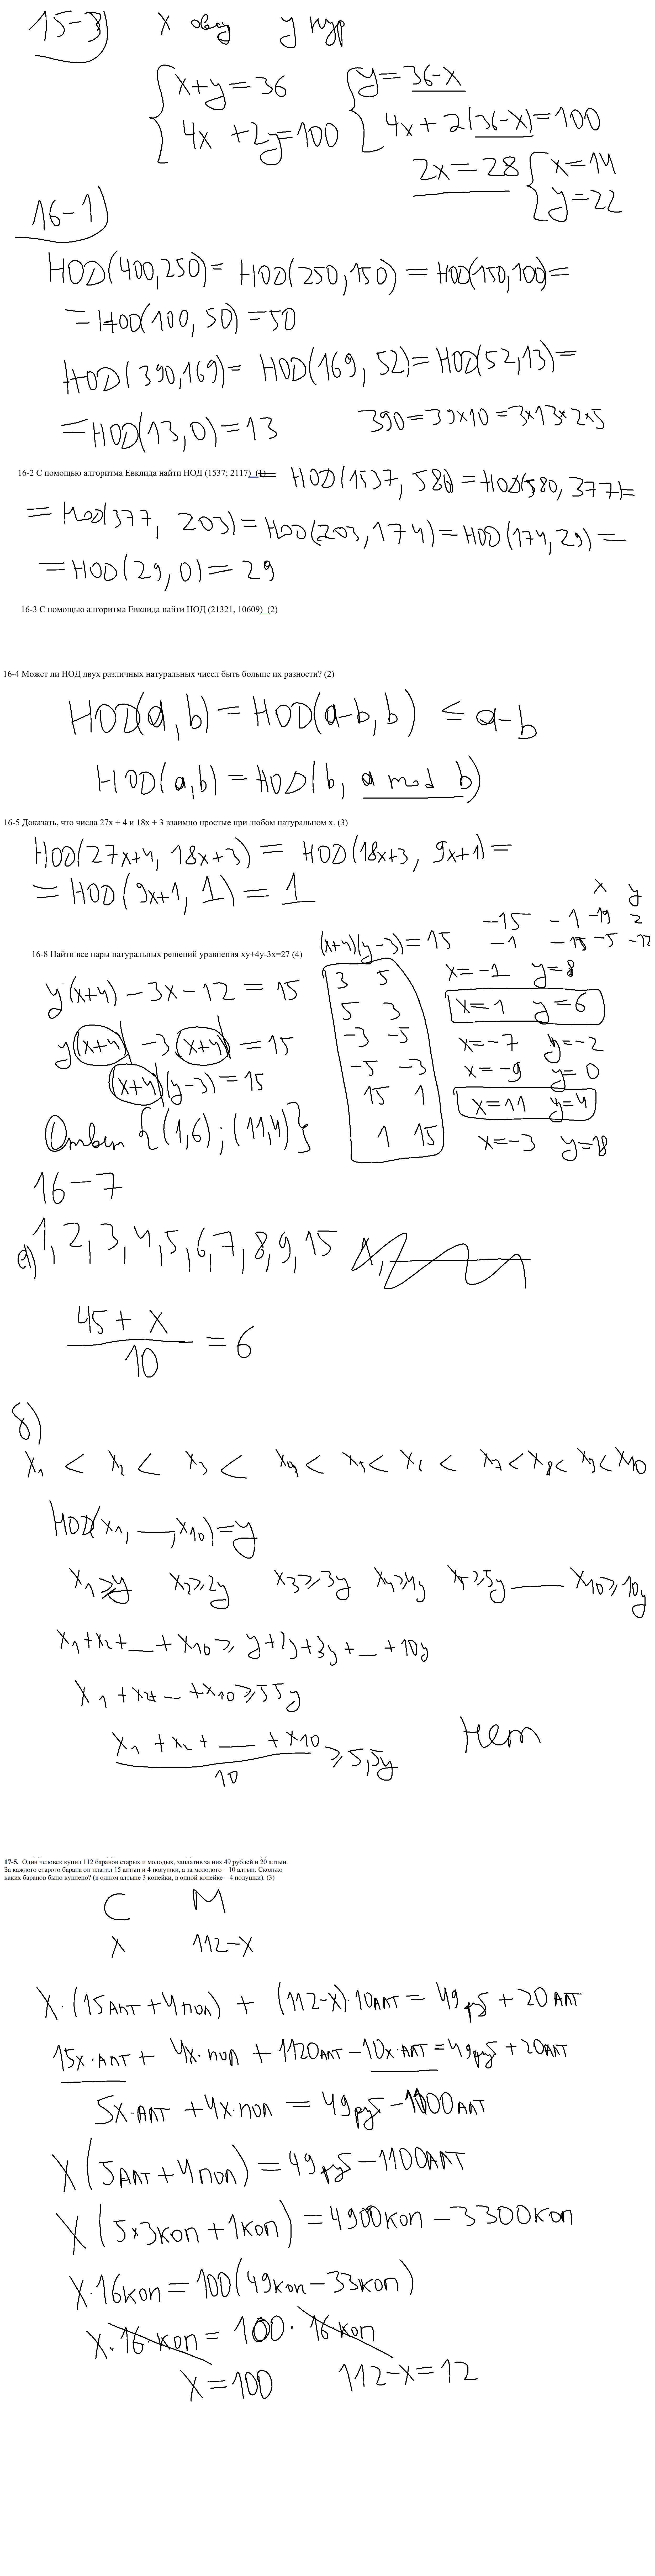 15-3) x овец y кур
{x+y=36 {y=36-x
4x +2y=100 4x+2(36-x)=100
2x=28 {x=14
y=22
16-1)
НОD(400,250)= НОD(250,150)= НОD(150,100)=
=НОD(100, 50)=50
НОD(390,169)= НОD(169, 52)= НОD(52,13)=
=НОD(13,0)=13 390=39×10=3×13×2×5
16-2 С помощью алгоритма Евклида найти НОД (1537; 2117) (1)= НОD(1537, 580)=НОD(580, 377)=
= НОD(377, 203)=НОD(203,174)=НОD(174,29)=
=НОD(29,0)=29
16-3 С помощью алгоритма Евклида найти НОД (21321, 10609) (2)
16-4 Может ли НОД двух различных натуральных чисел быть больше их разности? (2)
НОD(a,b)=НОD(a-b,b) ≤ a-b
НОD(a,b)=НОD(b, a mod b)
16-5 Доказать, что числа 27x + 4 и 18x + 3 взаимно простые при любом натуральном x. (3)
НОD(27x+4, 18x+3)= НОD(18x+3, 9x+1)=
=НОD(9x+1, 1)=1
x y
-15 -1 -19 2
(x+4)(y-3)=15 -1 -15 -5 -12
16-8 Найти все пары натуральных решений уравнения xy+4y-3x=27 (4)
y(x+4)-3x-12=15 3 5 x=-1 y=8
5 3 x=1 y=6
y(x+4)-3(x+4)=15 -3 -5 x=-7 y=-2
(x+4)(y-3)=15 -5 -3 x=-9 y=0
15 1 x=11 y=4
Ответ {(1,6);(11,4)} 1 15 x=-3 y=18
16-7
а) 1,2,3,4,5,6,7,8,9,15
45+x
10 =6
б)
x1 < x2 < x3 < x4 < x5 < x6 < x7 < x8 < x9 < x10
НОD(x1, —,x10)=y
x1≥y x2≥2y x3≥3y x4≥4y x5≥5y — x10≥10y
x1+x2+—+x10≥ y+2y+3y+—+10y
x1+x2+—+x10≥55y
x1+x2+ — +x10 ≥5,5y Нет
10
17-5. Один человек купил 112 баранов старых и молодых, заплатив за них 49 рублей и 20 алтын.
За каждого старого барана он платил 15 алтын и 4 полушки, а за молодого – 10 алтын. Сколько
каких баранов было куплено? (в одном алтыне 3 копейки, в одной копейке – 4 полушки). (3)
С М
x 112-x
x·(15АЛТ+4ПОЛ) + (112-x)·10АЛТ=49руб+20АЛТ
15x·АЛТ+ 4x·ПОЛ+1120АЛТ-10x·АЛТ=49руб+20АЛТ
5x·АЛТ+4x·ПОЛ=49руб-1100АЛТ
x(5АЛТ+4ПОЛ)=49руб-1100АЛТ
x(5×3КОП+1КОП)=4900КОП-3300КОП
x·16КОП=100(49КОП-33КОП)
x·16·КОП=100·16КОП
x=100 112-x=12